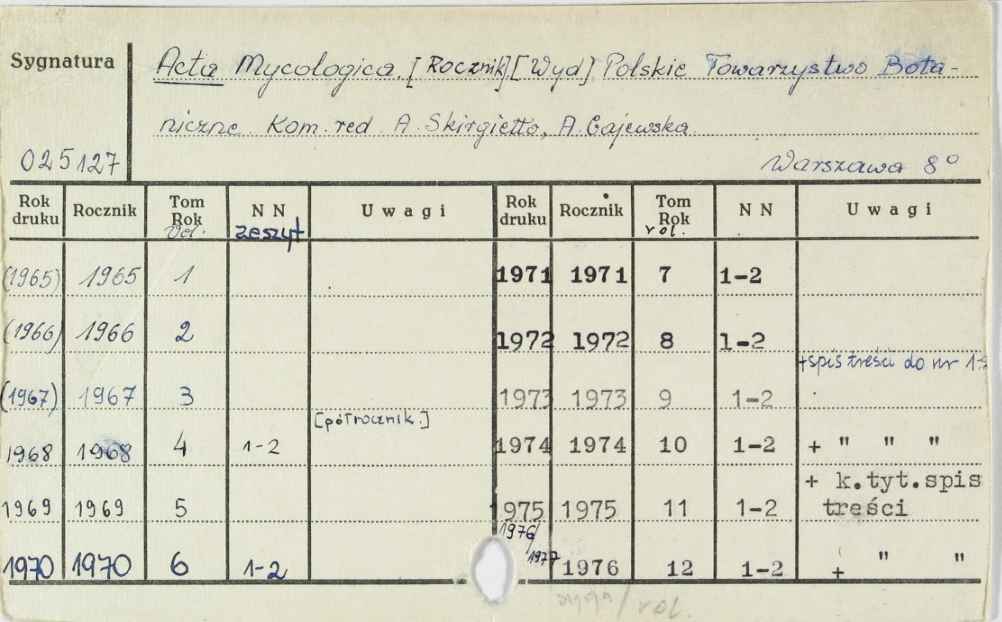 Sygnatura
Acta Mycologica. [Rocznik] [Wyd] Polskie Towarzystwo Bota-
niczne Kom. red A. Skirgiełło, A. Gajewska
025127
Warszawa 8°
Rok druku Rocznik Tom Rok Vol. NN zeszyt Uwagi Rok druku Rocznik Tom Rok vol. NN Uwagi
(1965) 1965 1 1971 1971 7 1-2
(1966) 1966 2 1972 1972 8 1-2
+spis treści do nr 1-2
(1967) 1967 3 1973 1973 9 1-2
[półrocznik.]
1968 1968 4 1-2 1974 1974 10 1-2 + " " "
1969 1969 5 1975 1975 11 1-2 + k.tyt.spis treści
1970 1970 6 1-2 1976/1977 1976 12 1-2 + " "
/ vol.